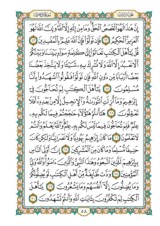 إن هذا لهو القصص الحق وما من إله إلا الله وإن الله لهو
العزيز الحكيم فإن تولوا فإن الله عليم بالمفسدين
قل يأهل الكتب تعالوا إلى كلمة سواء بيننا وبينكم
ألا نعبد إلا الله ولا نشرك به شيئا ولا يتخذ بعضنا
بعضا أربابا من دون الله فإن تولوا فقولوا اشهدوا بأنا
مسلمون يأهل الكتب لم تحاجون في
إبرهيم وما أنزلت التورىة والإنجيل إلا من بعده أفلا
تعقلون هأنتم هؤلاء حججتم فيما لكم به
علم فلم تحاجون فيما ليس لكم به علم والله يعلم
وأنتم لا تعلمون ما كان إبرهيم يهوديا ولا نصرانيا
ولكن كان حنيفا مسلما وما كان من المشركين إن أولى الناس
بإبرهيم للذين اتبعوه وهذا النبي والذين ءامنوا والله ولي
المؤمنين ودت طائفة من أهل الكتب لو يضلونكم
وما يضلون إلا أنفسهم وما يشعرون يأهل
الكتب لم تكفرون بءايت الله وأنتم تشهدون
٥٨